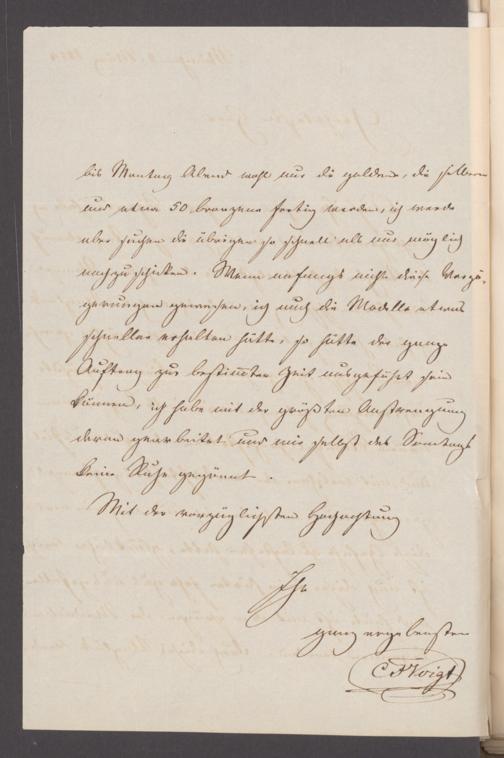 bis Montag Abend wohl nur die goldene, die silberne
und etwa 50 bronzene fertig werden, ich werde
aber suchen die übrigen so schnell als nur möglich
nachzuschicken. Wenn anfangs nicht diese Verzö-
gerungen gewesen, ich auch die Modelle etwas
schneller erhalten hätte, so hätte der ganze
Auftrag zur bestimmten Zeit ausgeführt sein
können, ich habe mit der größten Anstrengung
daran gearbeitet und mir selbst des Sonntags
keine Ruhe gegönnt.
Mit der vorzüglichsten Hochachtung
Ihr
ganz ergebenster
C F Voigt